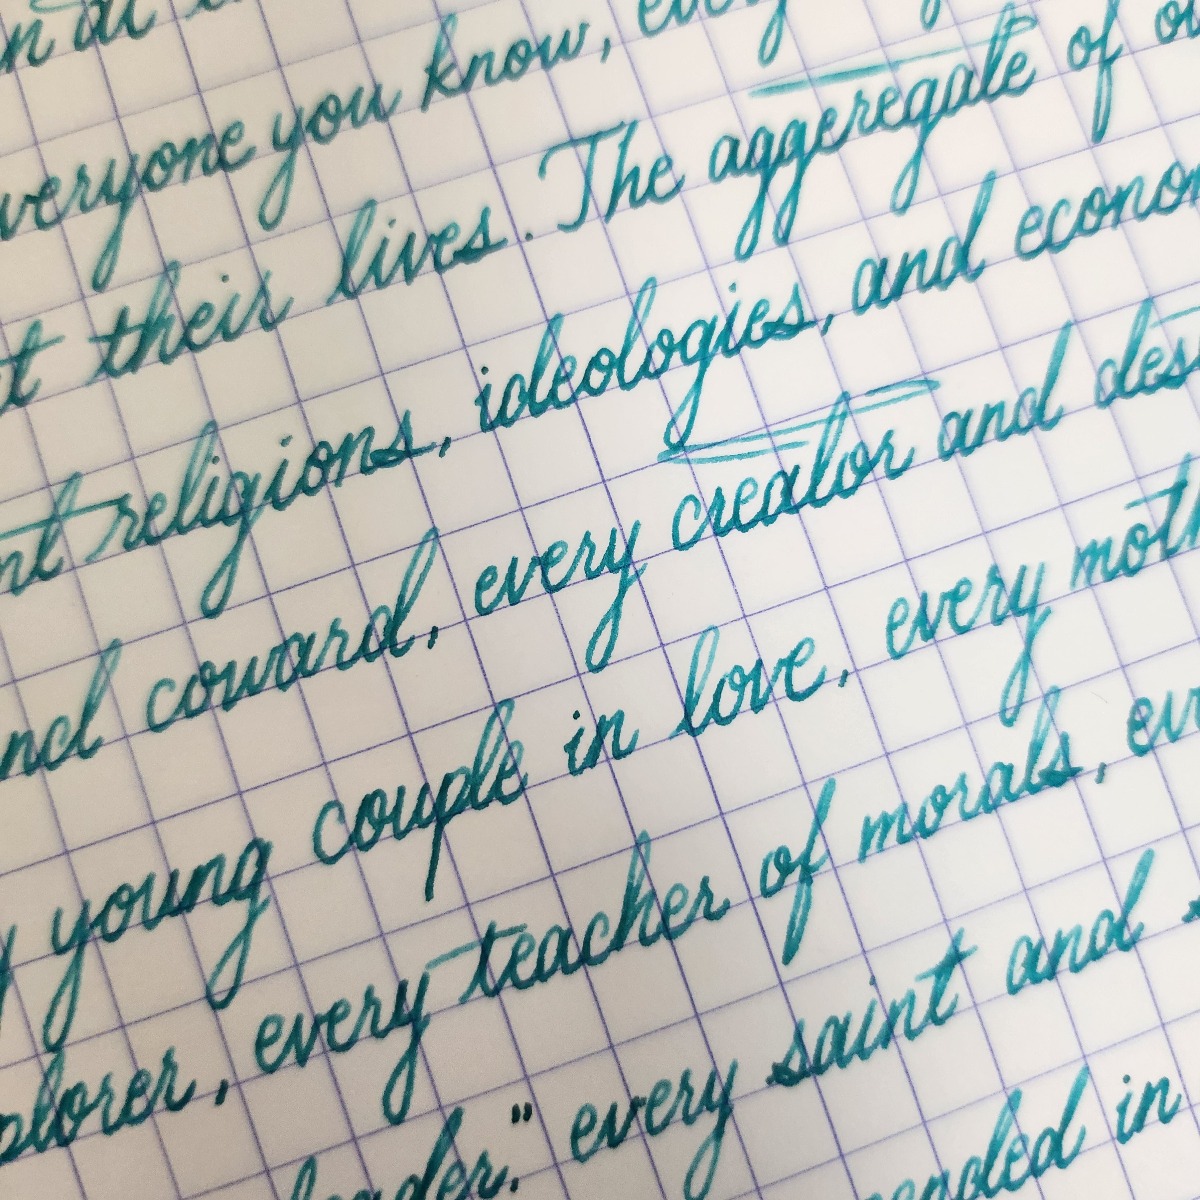 n at
veryone you know, every
t their lives. The aggeregate of ou
nt religions, ideologies, and econom
nd coward, every creator and des
y young couple in love, every moth
plorer, every teacher of morals, ev
eader," every saint and
pended in